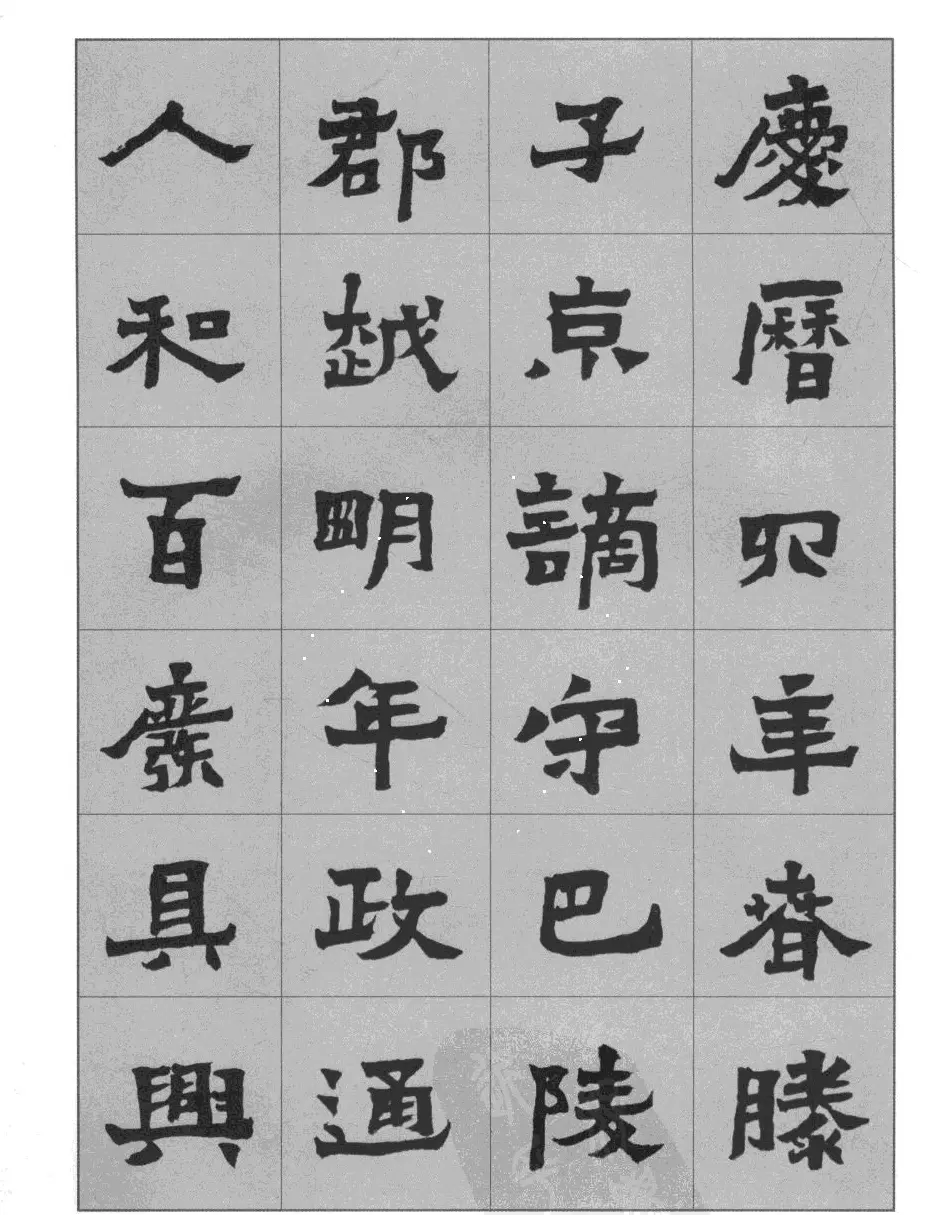 慶曆四年春滕
子京謫守巴陵
郡越明年政通
人和百廢具興